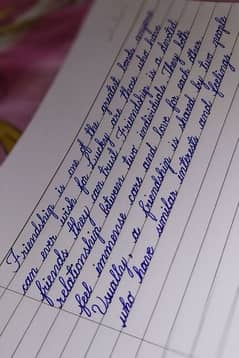 Friendship is one of the greatest bonds anyone
can ever wish for. Lucky are those who have
friends they can trust. Friendship is a devoted
relationship between two individuals. They both
feel immense care and love for each other.
Usually, a friendship is shared by two people
who have similar interests and feelings.